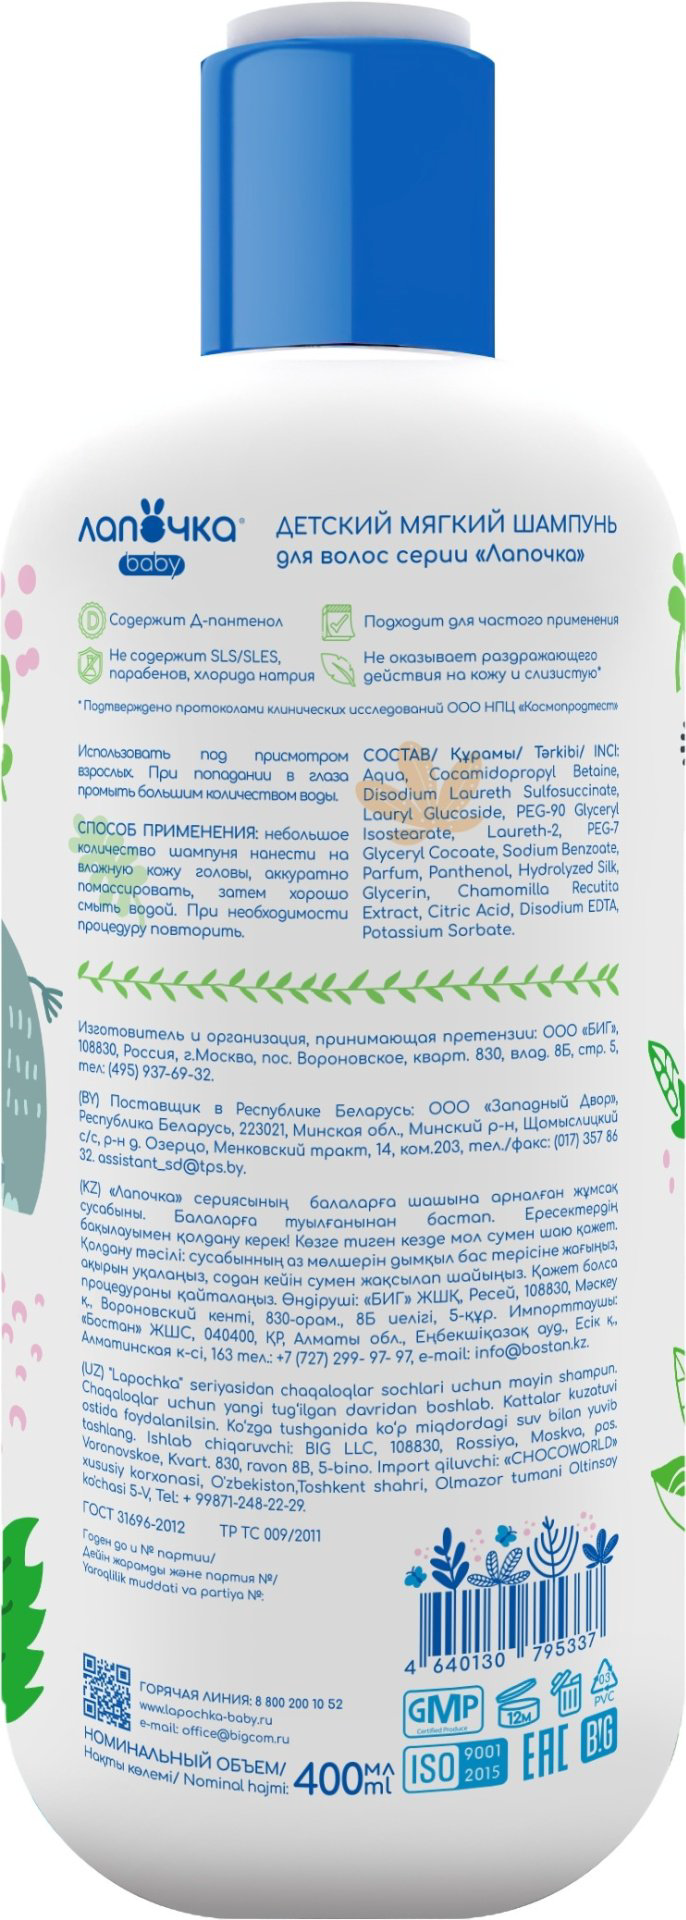 лапочка®
baby
ДЕТСКИЙ МЯГКИЙ ШАМПУНЬ
для волос серии «Лапочка»
D Содержит Д-пантенол
Подходит для частого применения
Не содержит SLS/SLES,
парабенов, хлорида натрия
Не оказывает раздражающего
действия на кожу и слизистую*
*Подтверждено протоколами клинических исследований ООО НПЦ «Космопродтест»
Использовать под присмотром
взрослых. При попадании в глаза
промыть большим количеством воды.
СПОСОБ ПРИМЕНЕНИЯ: небольшое
количество шампуня нанести на
влажную кожу головы, аккуратно
помассировать, затем хорошо
смыть водой. При необходимости
процедуру повторить.
СОСТАВ/ Құрамы/ Tərkibi/ INCI:
Aqua, Cocamidopropyl Betaine,
Disodium Laureth Sulfosuccinate,
Lauryl Glucoside, PEG-90 Glyceryl
Isostearate, Laureth-2, PEG-7
Glyceryl Cocoate, Sodium Benzoate,
Parfum, Panthenol, Hydrolyzed Silk,
Glycerin, Chamomilla Recutita
Extract, Citric Acid, Disodium EDTA,
Potassium Sorbate.
Изготовитель и организация, принимающая претензии: ООО «БИГ»,
108830, Россия, г.Москва, пос. Вороновское, кварт. 830, влад. 8Б, стр. 5,
тел: (495) 937-69-32.
(BY) Поставщик в Республике Беларусь: ООО «Западный Двор»,
Республика Беларусь, 223021, Минская обл., Минский р-н, Щомыслицкий
с/с, р-н д. Озерцо, Менковский тракт, 14, ком.203, тел./факс: (017) 357 86
32. assistant_sd@tps.by.
(KZ) «Лапочка» сериясының балаларға шашына арналған жұмсақ
сусабыны. Балаларға туылғанынан бастап. Ересектердің
бақылауымен қолдану керек! Көзге тиген кезде мол сумен шаю қажет.
Қолдану тәсілі: сусабынның аз мөлшерін дымқыл бас терісіне жағыңыз,
ақырын уқалаңыз, содан кейін сумен жақсылап шайыңыз. Қажет болса
процедураны қайталаңыз. Өндіруші: «БИГ» ЖШҚ, Ресей, 108830, Мәскеу
қ., Вороновский кенті, 830-орам., 8Б иелігі, 5-құр. Импорттаушы:
«Бостан» ЖШС, 040400, ҚР, Алматы обл., Еңбекшіқазақ ауд., Есік қ.,
Алматинская к-сі, 163 тел.: +7 (727) 299- 97- 97, e-mail: info@bostan.kz.
(UZ) "Lapochka" seriyasidan chaqaloqlar sochlari uchun mayin shampun.
Chaqaloqlar uchun yangi tug'ilgan davridan boshlab. Kattalar kuzatuvi
ostida foydalanilsin. Ko'zga tushganida ko'p miqdordagi suv bilan yuvib
tashlang. Ishlab chiqaruvchi: BIG LLC, 108830, Rossiya, Moskva, pos.
Voronovskoe, Kvart. 830, ravon 8B, 5-bino. Import qiluvchi: «CHOCOWORLD»
xususiy korxonasi, O'zbekiston,Toshkent shahri, Olmazor tumani Oltinsoy
ko'chasi 5-V, Tel: + 99871-248-22-29.
ГОСТ 31696-2012 ТР ТС 009/2011
Годен до и № партии/
Дейін жарамды және партия №/
Yaroqlilik muddati va partiya №:
4 640130 795337
ГОРЯЧАЯ ЛИНИЯ: 8 800 200 10 52
www.lapochka-baby.ru
e-mail: office@bigcom.ru
НОМИНАЛЬНЫЙ ОБЪЕМ/
Нақты көлемі/ Nominal hajmi: 400 мл ml
GMP
Certified Produce
12М
03
PVC
ISO 9001 2015
EAC
B!G